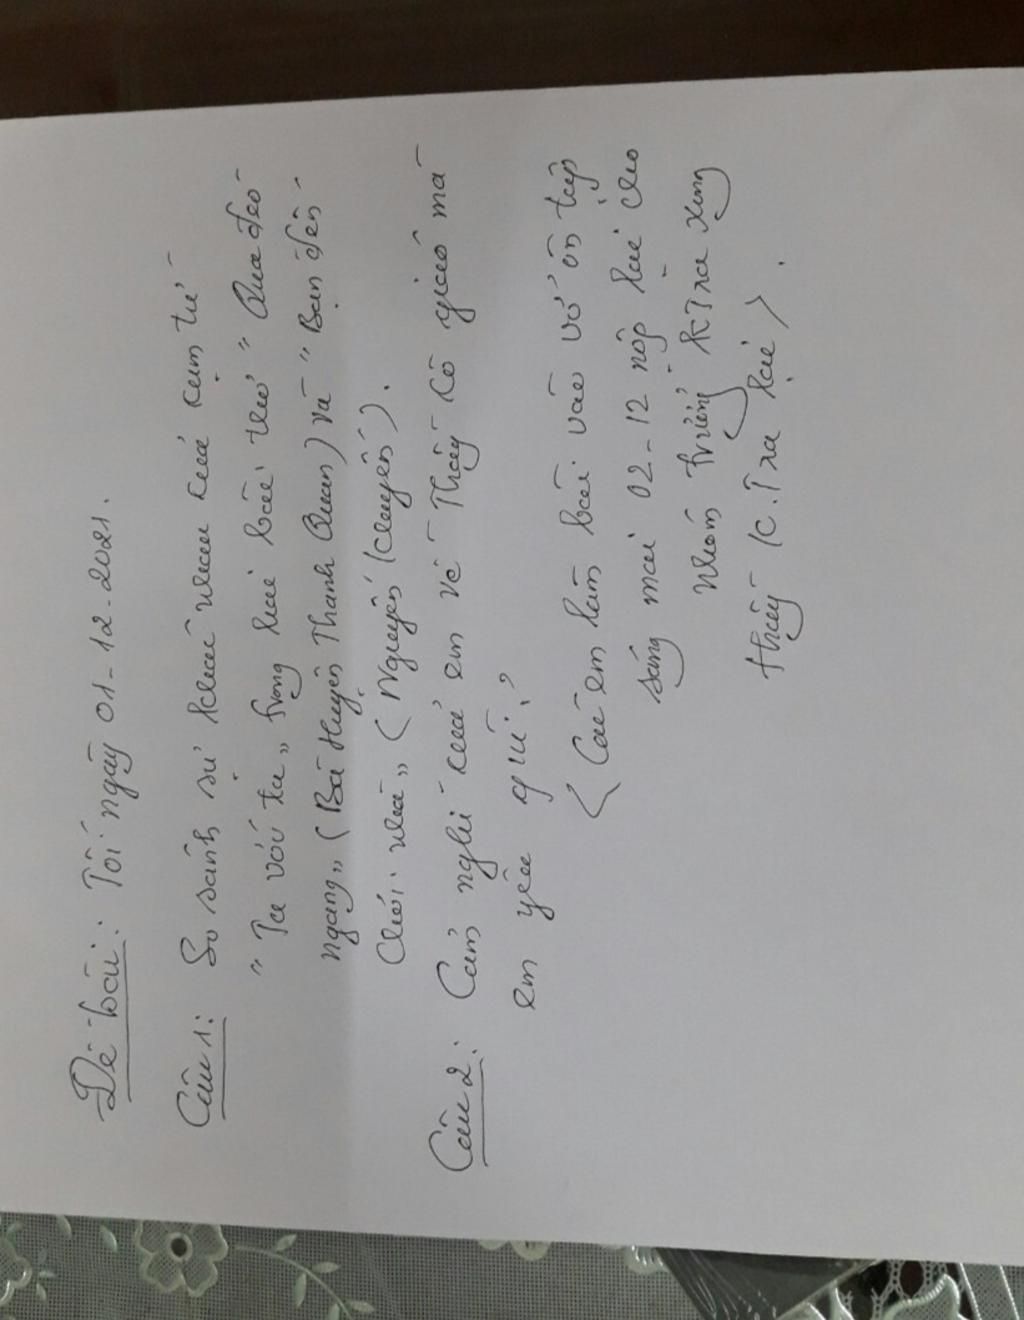 Đề bài: Tối ngày 01-12-2021.
Câu 1: So sánh sự khác nhau của cụm từ
"Ta với ta" trong hai bài thơ "Qua đèo
ngang" (Bà Huyện Thanh Quan) và "Bạn đến
chơi nhà" (Nguyễn Khuyến).
Câu 2: Cảm nghĩ của em về Thầy cô giáo mà
em yêu quí.?
< Các em làm bài vào vở ôn tập
sáng mai 02-12 nộp lại cho
nhóm trưởng kTra xong
thầy (c. Tra lại >.